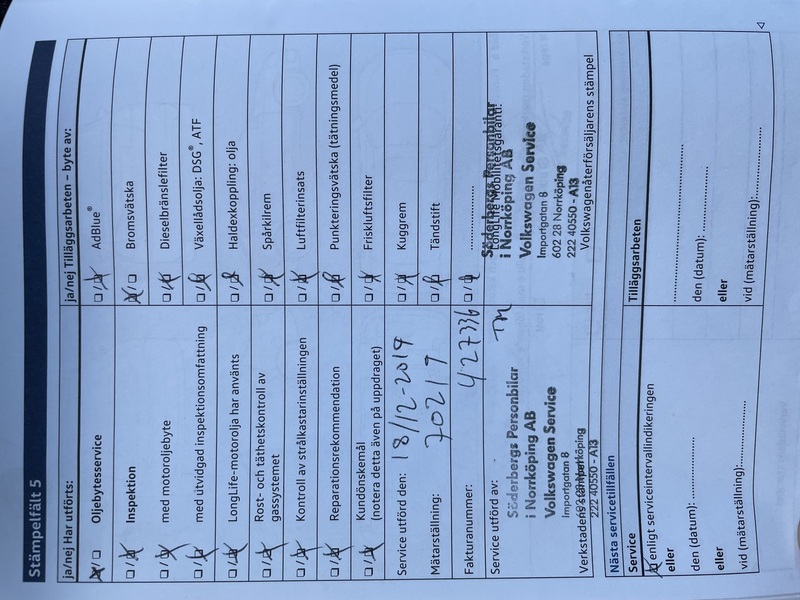 Stämpelfält 5
ja/nej Har utförts:
Oljebytesservice
Inspektion
med motoroljebyte
med utvidgad inspektionsomfattning
LongLife-motorolja har använts
Rost- och täthetskontroll av
gassystemet
Kontroll av strålkastarinställningen
Reparationsrekommendation
Kundönskemål
(notera detta även på uppdraget)
Service utförd den: 18/12-2019
Mätarställning: 70217
Fakturanummer: 427336
Service utförd av: TM
Söderbergs Personbilar
i Norrköping AB
Volkswagen Service
Importgatan 8
602 28 Norrköping
Verkstadens stämpel
222 40550 - A13
ja/nej Tilläggsarbeten – byte av:
AdBlue®
Bromsvätska
Dieselbränslefilter
Växellådsolja: DSG®, ATF
Haldexkoppling: olja
Spårkilrem
Luftfilterinsats
Punkteringsvätska (tätningsmedel)
Friskluftsfilter
Kuggrem
Tändstift
LongLife Mobilitetsgaranti:
Söderbergs Personbilar
i Norrköping AB
Volkswagen Service
Importgatan 8
602 28 Norrköping
222 40550 - A13
Volkswagenåterförsäljarens stämpel
Nästa servicetillfällen
Service
enligt serviceintervallindikeringen
eller
den (datum):
eller
vid (mätarställning):
Tilläggsarbeten
den (datum):
eller
vid (mätarställning):